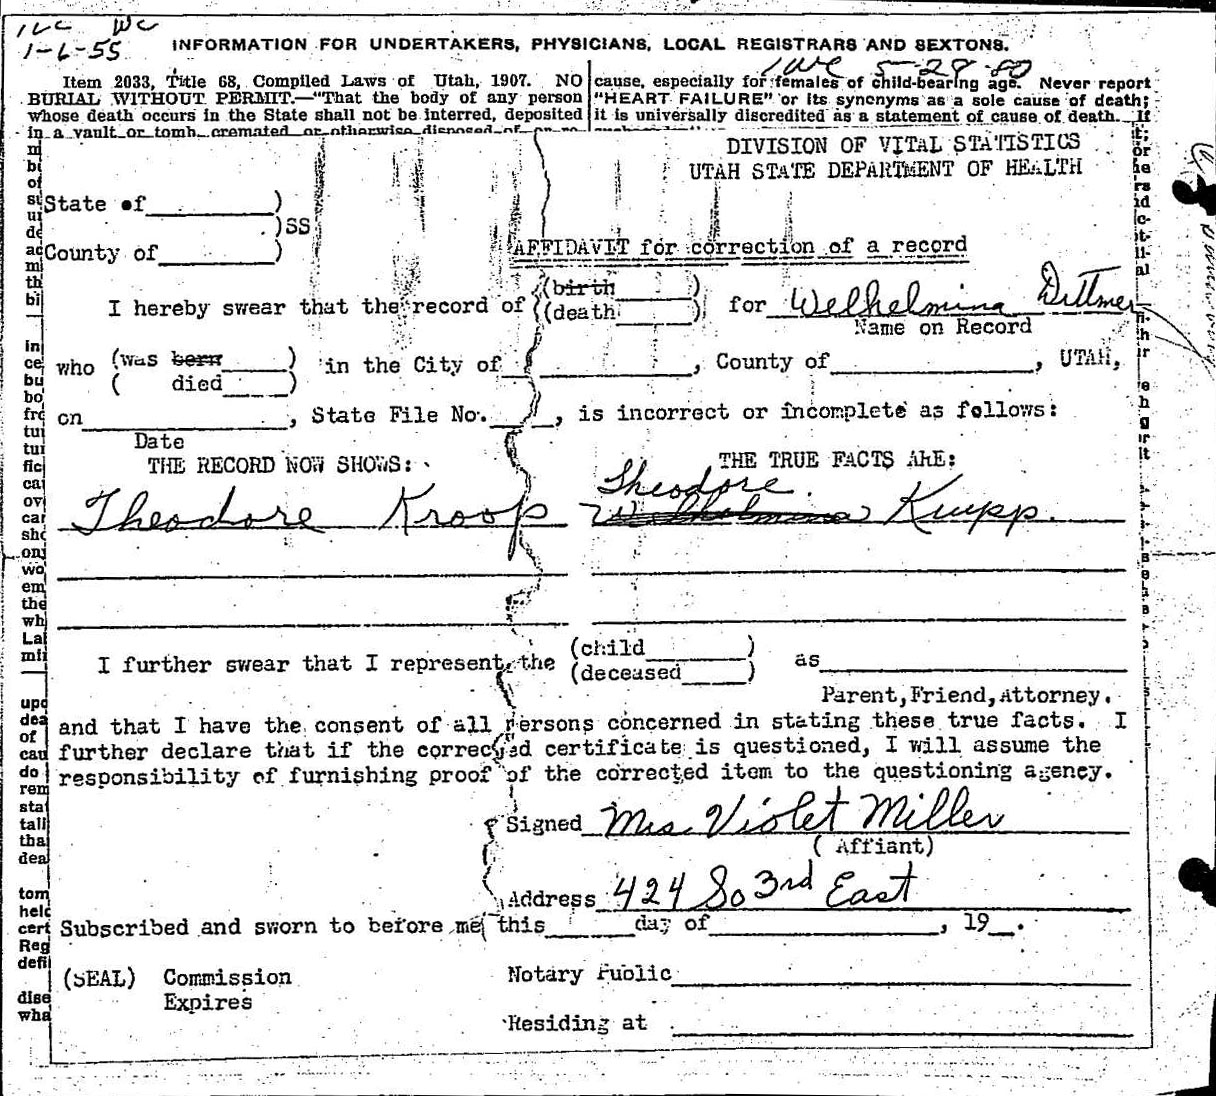 1-6-55
INFORMATION FOR UNDERTAKERS, PHYSICIANS, LOCAL REGISTRARS AND SEXTONS.
5-28-80
Item 2033, Title 68, Compiled Laws of Utah, 1907. NO
BURIAL WITHOUT PERMIT.—"That the body of any person
whose death occurs in the State shall not be interred, deposited
in a vault or tomb, cremated or otherwise disposed of
cause, especially for females of child-bearing age. Never report
"HEART FAILURE" or its synonyms as a sole cause of death;
it is universally discredited as a statement of cause of death. If
DIVISION OF VITAL STATISTICS
UTAH STATE DEPARTMENT OF HEALTH
State of )
)SS
County of )
AFFIDAVIT for correction of a record
I hereby swear that the record of (birth ) for Welhelmina Dittmer
(death )
Name on Record
who (was born ) in the City of , County of , UTAH,
( died )
on , State File No. , is incorrect or incomplete as follows:
Date
THE RECORD NOW SHOWS: THE TRUE FACTS ARE:
Theodore
Theodore Kroop Welhelmina Krupp.
I further swear that I represent the (child ) as
(deceased )
Parent, Friend, Attorney.
and that I have the consent of all persons concerned in stating these true facts. I
further declare that if the corrected certificate is questioned, I will assume the
responsibility of furnishing proof of the corrected item to the questioning agency.
Signed Mrs Violet Miller
( Affiant)
Address 424 So 3rd East
Subscribed and sworn to before me this day of , 19 .
(SEAL) Commission Notary Public
Expires
Residing at